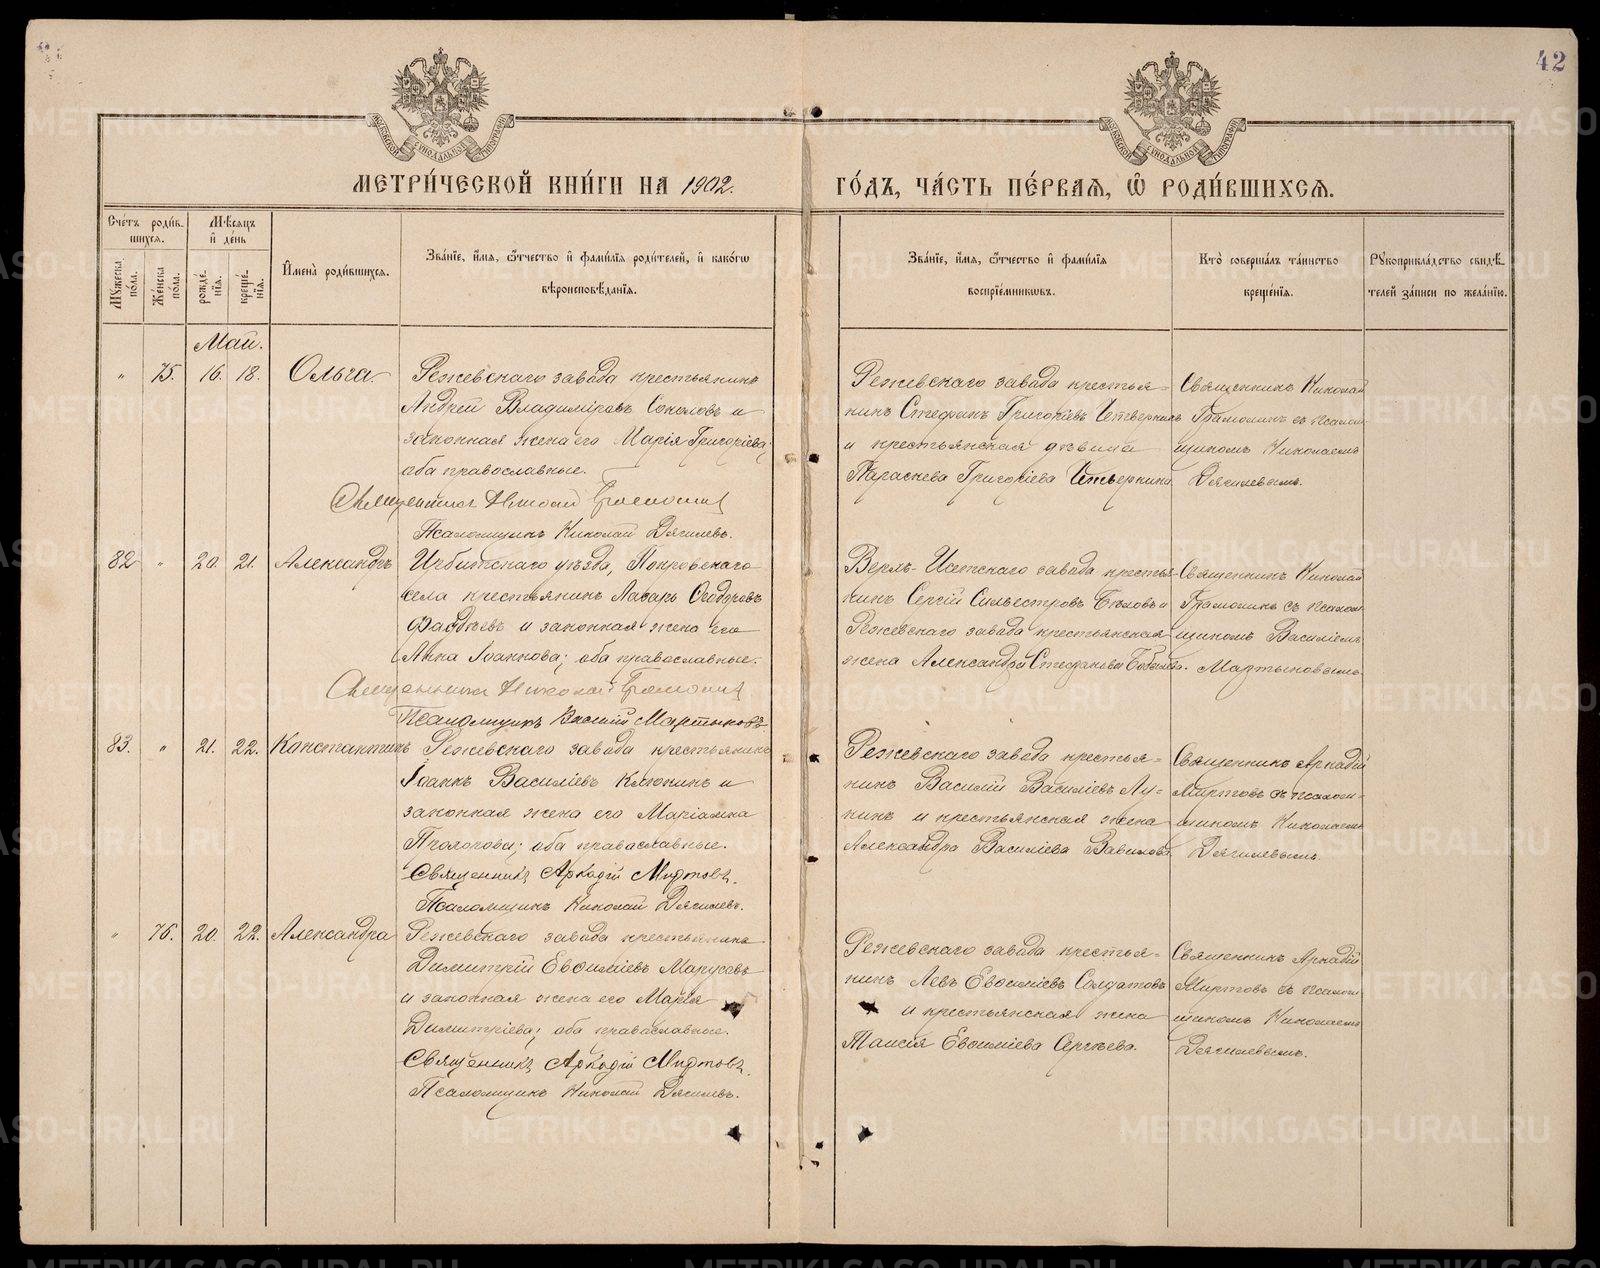 42
МОСКОВСКОЙ СѴНОДАЛЬНОЙ ТИПОГРАФІИ
МОСКОВСКОЙ СѴНОДАЛЬНОЙ ТИПОГРАФІИ
МЕТРИ́ЧЕСКОЙ КНИ́ГИ НА 1902.
ГО́ДЪ, ЧА́СТЬ ПЕ́РВАЯ, Ѽ РОДИ́ВШИХСЯ.
Сче́тъ роди́в-
шихся.
Мꙋ́жеска по́ла.
Же́нска по́ла.
Мѣ́сяцъ
и҆ де́нь
рожде́нїя.
креще́нїя.
И҆мена̀ роди́вшихся.
Зва́нїе, и҆́мя, ѻ҆́тчество и҆ фами́лїя роди́телей, и҆ како́гѡ
вѣроисповѣ́данїя.
Зва́нїе, и҆́мя, ѻ҆́тчество и҆ фами́лїя
воспрїе́мникѡвъ.
Кто̀ соверша́лъ та́инство
креще́нїя.
Рꙋкоприкла́дство свидѣ́-
телей за́писи по жела́нїю.
Май.
" 75. 16. 18. Ольга.
Режевскаго завода крестьянинъ
Андрей Владиміровъ Соколовъ и
законная жена его Марія Григоріева;
оба православные.
Священникъ Николай Грамолинъ
Псаломщикъ Николай Дягилевъ.
Режевскаго завода крестья-
нинъ Стефанъ Григоріевъ Четверкинъ
и крестьянская дѣвица
Параскева Григоріева Четверкина
Священникъ Николай
Грамолинъ съ псалом-
щикомъ Николаемъ
Дягилевымъ.
82 " 20. 21. Александръ
Ирбитскаго уѣзда, Покровскаго
села крестьянинъ Лазарь Ѳеодоровъ
Фадѣевъ и законная жена его
Анна Іоаннова; оба православные.
Священникъ Николай Грамолинъ
Псаломщикъ Василій Мартыновъ
Верхъ-Исетскаго завода крестья-
нинъ Сергій Сильвестровъ Бѣловъ и
Режевскаго завода крестьянская
жена Александра Стефанова
Священникъ Николай
Грамолинъ съ псалом-
щикомъ Василіемъ
Мартыновымъ.
83. " 21. 22. Константинъ
Режевскаго завода крестьянинъ
Іоаннъ Василіевъ Клюкинъ и
законная жена его Маріамна
оба православные.
Священникъ Аркадій Миртовъ.
Псаломщикъ Николай Дягилевъ.
Режевскаго завода крестья-
нинъ Василій Василіевъ Лу-
кинъ и крестьянская жена
Александра Василіева Вавилова
Священникъ Аркадій
Миртовъ съ псалом-
щикомъ Николаемъ
Дягилевымъ.
" 76. 20. 22. Александра
Режевскаго завода крестьянинъ
Димитрій Евѳиміевъ Марусовъ
и законная жена его Марія
Димитріева; оба православные.
Священникъ Аркадій Миртовъ.
Псаломщикъ Николай Дягилевъ.
Режевскаго завода крестья-
нинъ Левъ Евѳиміевъ Солдатовъ
и крестьянская жена
Таисія Евѳиміева Сергѣева.
Священникъ Аркадій
Миртовъ съ псалом-
щикомъ Николаемъ
Дягилевымъ.
METRIKI.GASO-URAL.RU